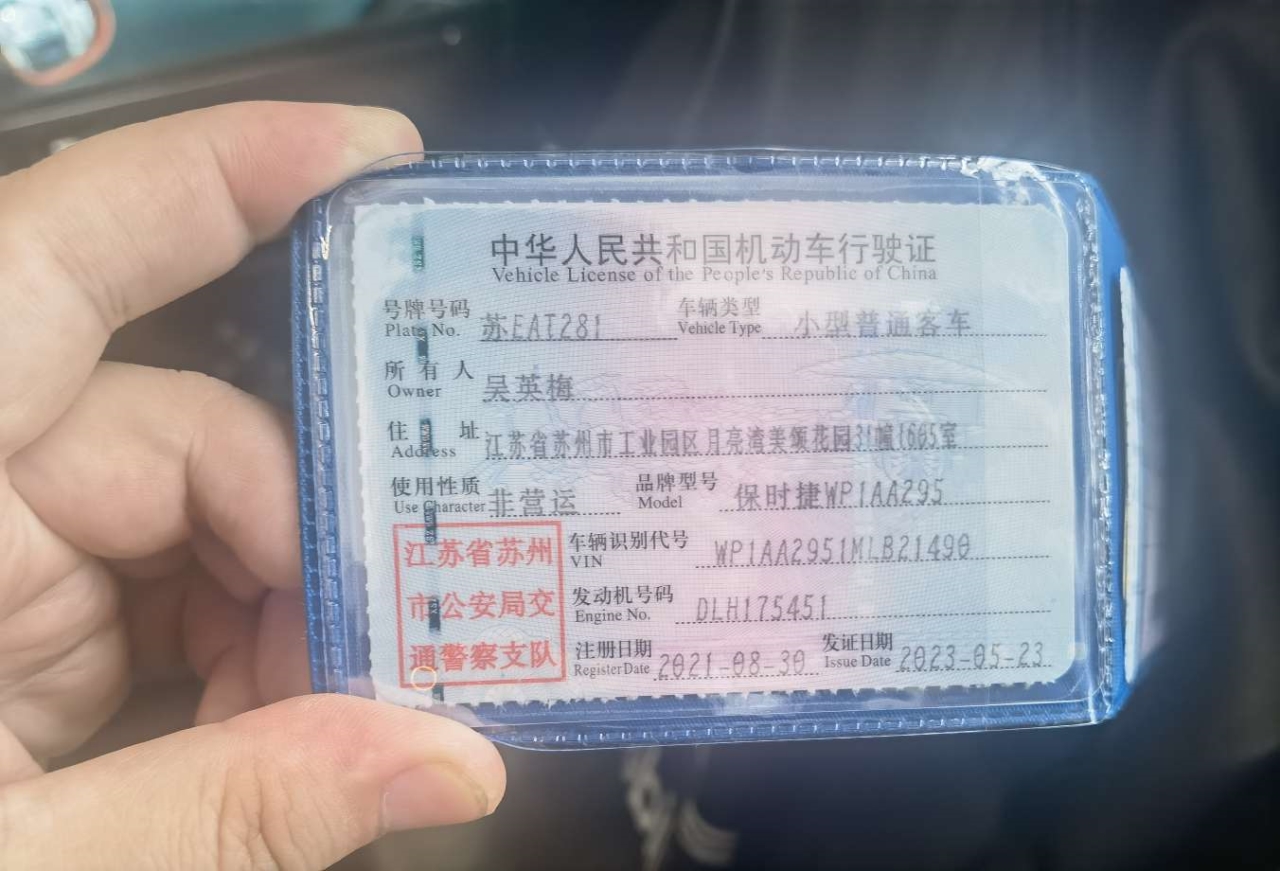 中华人民共和国机动车行驶证
Vehicle License of the People's Republic of China
号牌号码 苏EAT281 车辆类型 小型普通客车
Plate No. Vehicle Type
所有人 吴英梅
Owner
住址 江苏省苏州市工业园区月亮湾美颂花园31幢1605室
Address
使用性质 非营运 品牌型号 保时捷WP1AA295
Use Character Model
江苏省苏州
市公安局交
通警察支队
车辆识别代号 WP1AA2951MLB21490
VIN
发动机号码 DLH175451
Engine No.
注册日期 2021-08-30 发证日期 2023-05-23
Register Date Issue Date